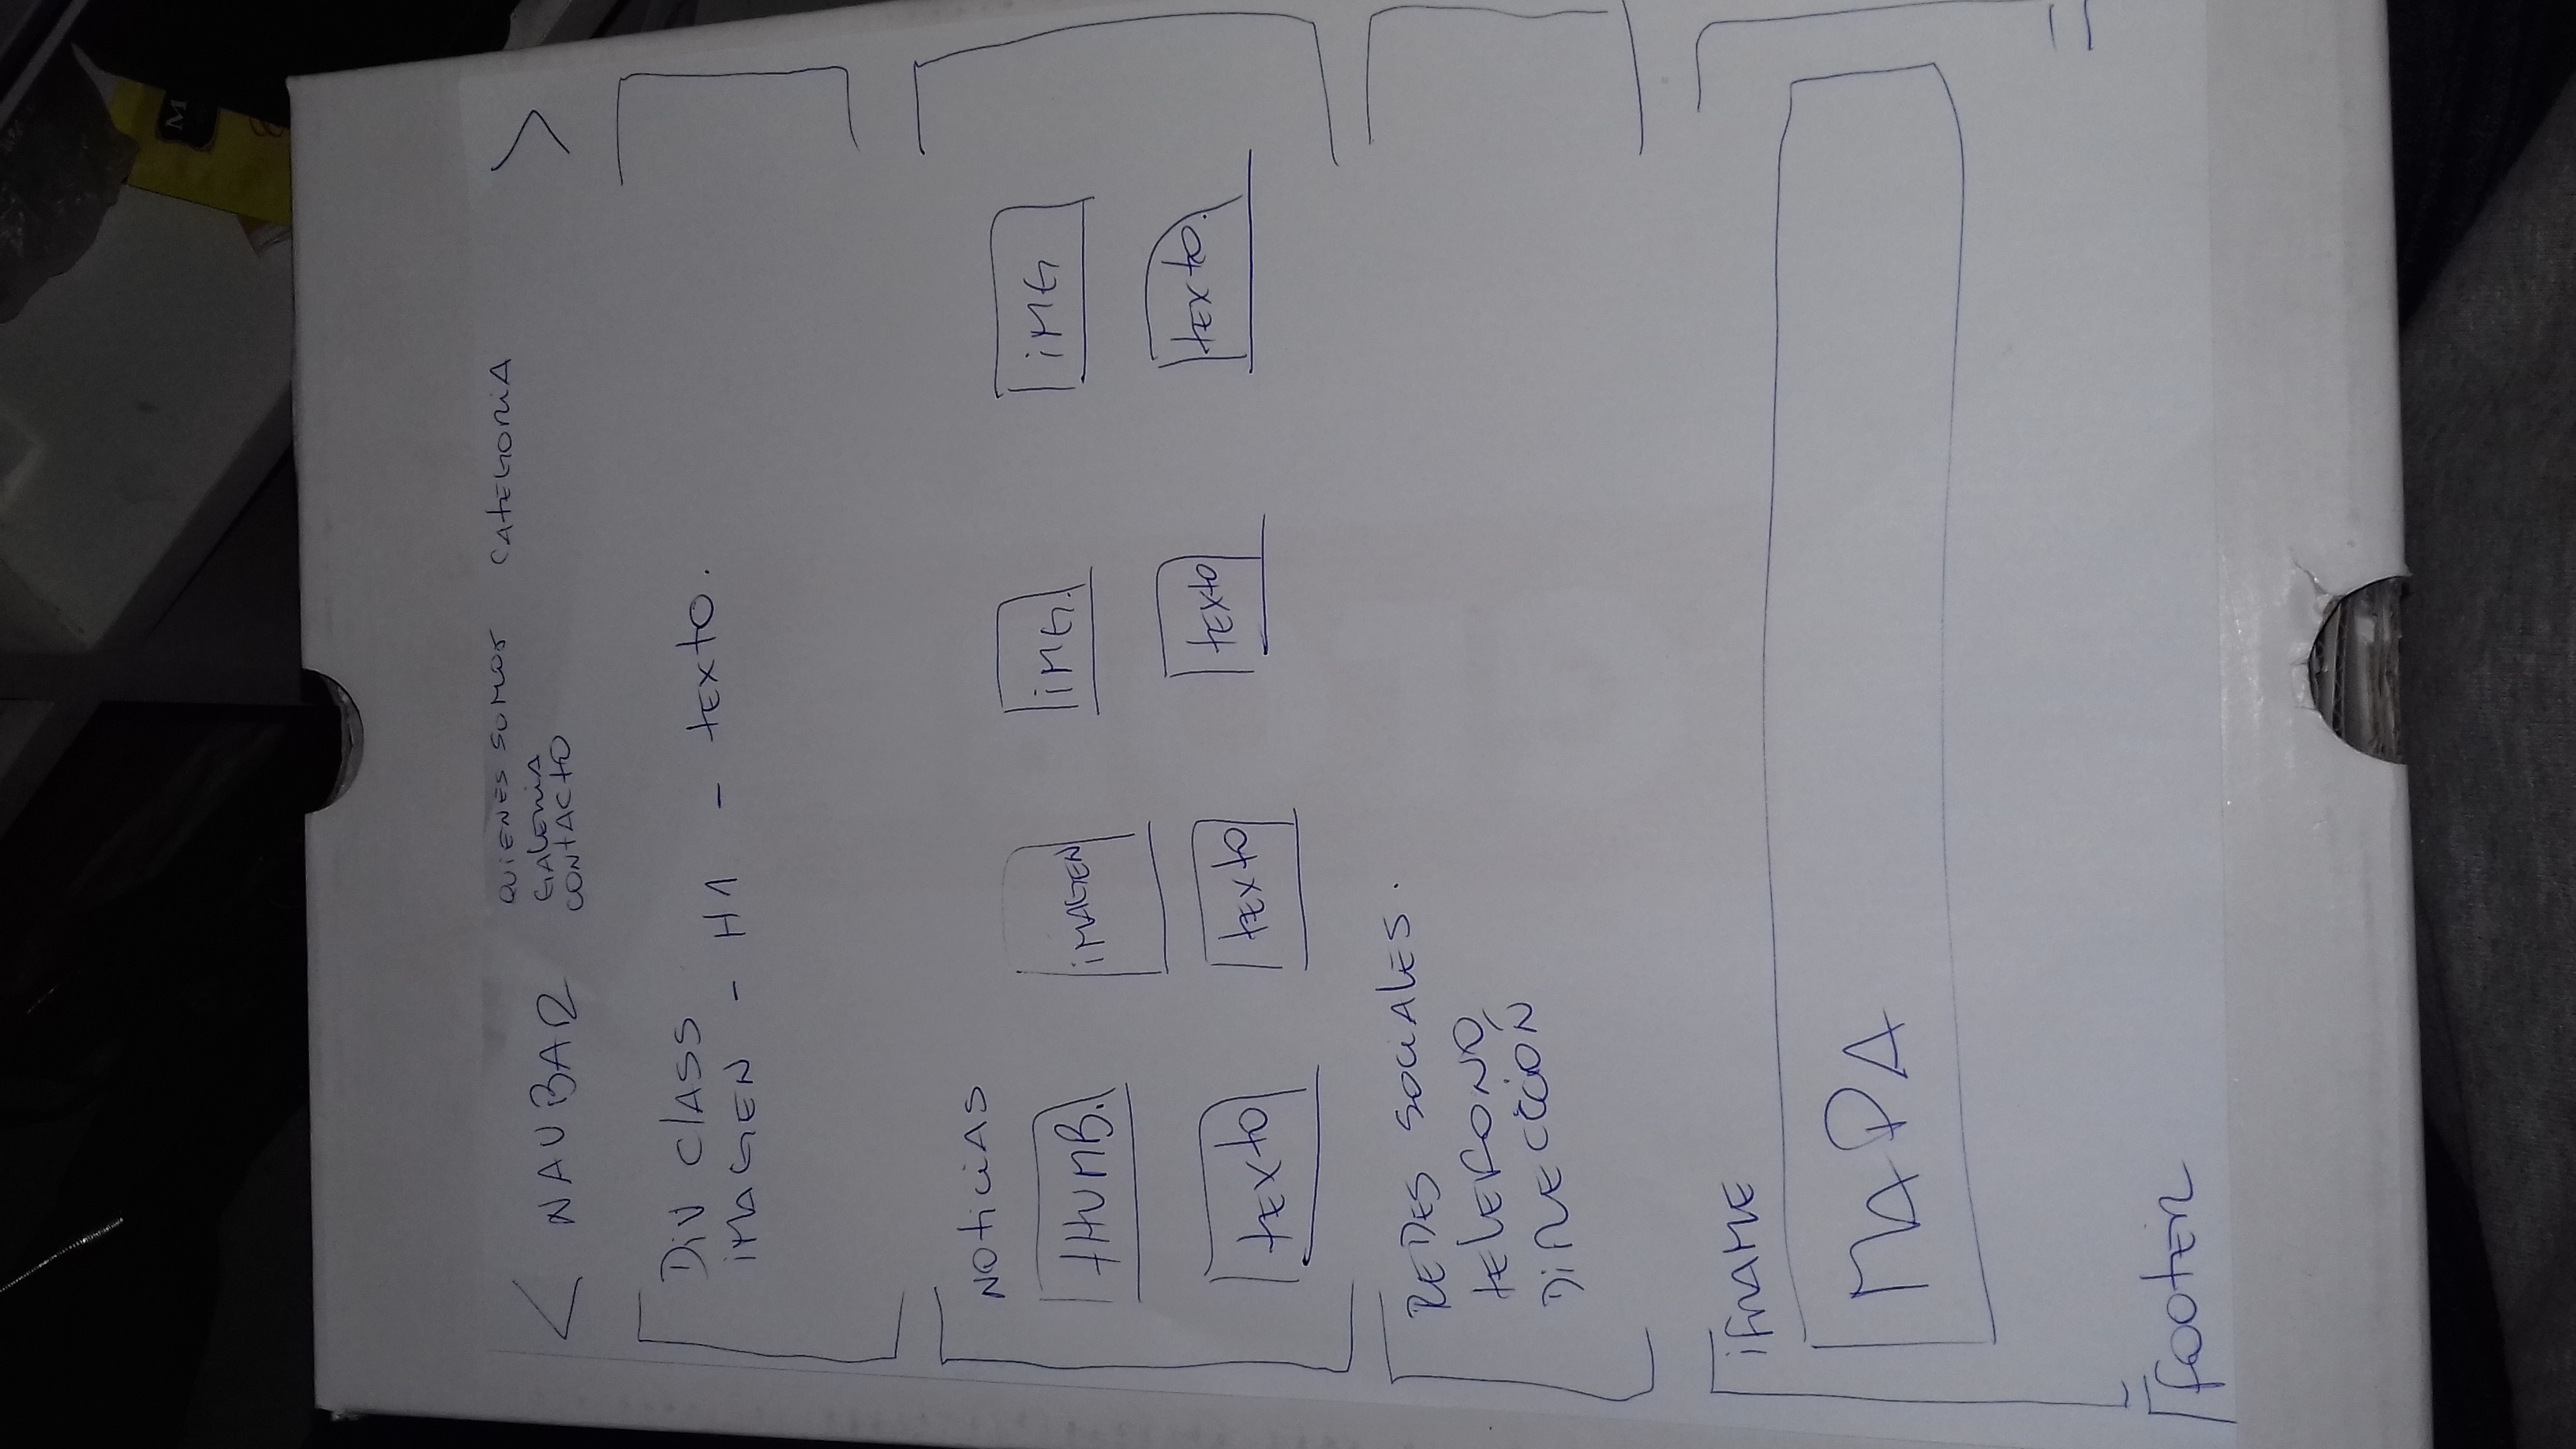 QUIENES SOMOS CATEGORIA
NAVBAR GALERIA
CONTACTO
DIV CLASS
IMAGEN - H1 - texto.
NOTICIAS
tHUMB. IMAGEN IMG. IMG
texto texto texto texto.
REDES SOCIALES.
tELEFONO
DIRECCION
IFRAME
MAPA
footer
M